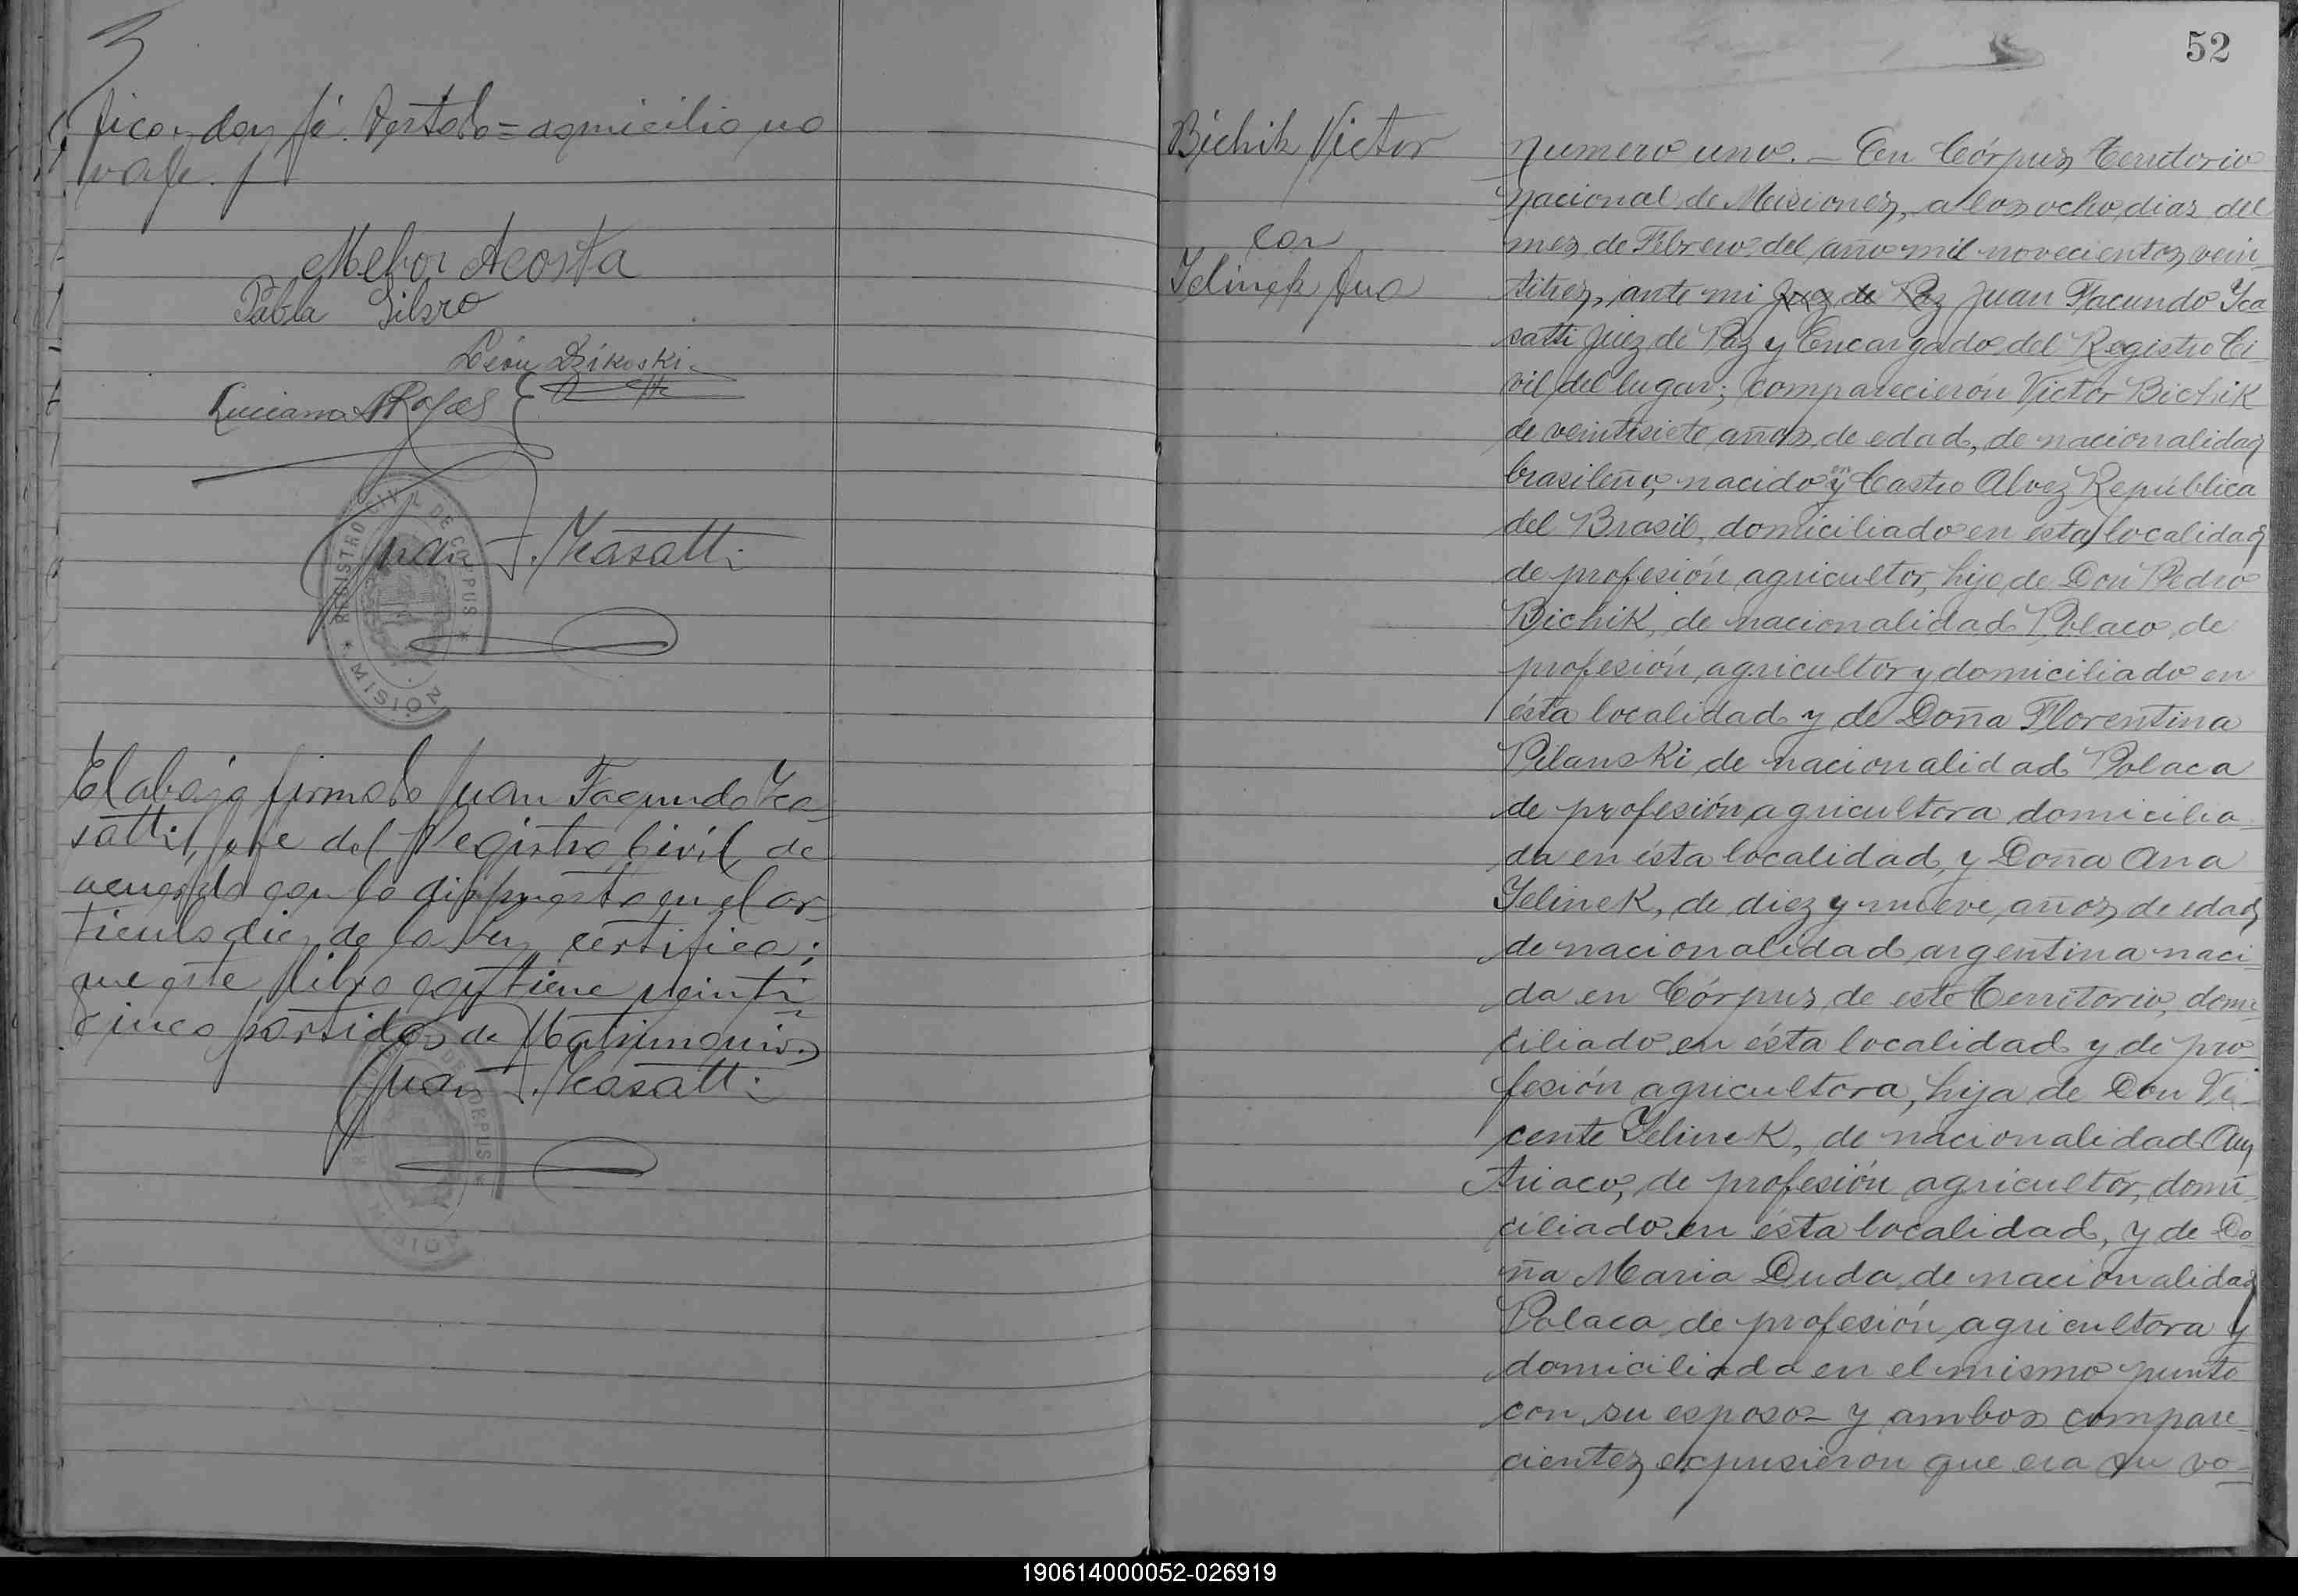 fico, doy fé. Testado = domicilio no
vale.
Melor Acosta
Pabla Silvro
León Dzikoski
Luciano A Rojas
REGISTRO CIVIL DE CORPUS
* MISIONES *
Juan F. Ycasatti
El abajo firmado Juan Facundo Yca-
satti, Jefe del Registro Civil, de
acuerdo con lo dispuesto en el ar-
ticulo diez de la Ley certifica:
que este libro contiene veinti-
cinco partidas de Matrimonios
Juan F. Ycasatti
52
Bichik Victor
con
Yelinek Ana
Numero uno. — En Córpus Territorio
Nacional de Misiones, a los ocho dias del
mes de Febrero del año mil novecientos vein-
titres, ante mi Juez de Paz Juan Facundo Yca
satti Juez de Paz y Encargado del Registro Ci-
vil del lugar; comparecierón Victor Bichik
de veintisiete años de edad, de nacionalidad
brasileño, nacido en y Castro Alvez República
del Brasil, domiciliado en ésta localidad
de profesión agricultor, hijo de Don Pedro
Bichik, de nacionalidad Polaco, de
profesión agricultor y domiciliado en
ésta localidad y de Doña Florentina
Pilanski de nacionalidad Polaca
de profesión agricultora domicilia-
da en ésta localidad, y Doña Ana
Yelinek, de diez y nueve años de edad
de nacionalidad argentina naci-
da en Córpus de este Territorio, domi-
ciliado en ésta localidad y de pro-
fesión agricultora, hija de Don Vi-
cente Yelinek, de nacionalidad Aus
triaco, de profesión agricultor, domi-
ciliado en ésta localidad, y de Do-
ña Maria Duda de nacionalidad
Polaca de profesión agricultora y
domiciliada en el mismo punto
con su esposo — y ambos compare-
cientes expusieron que era su vo-
190614000052-026919